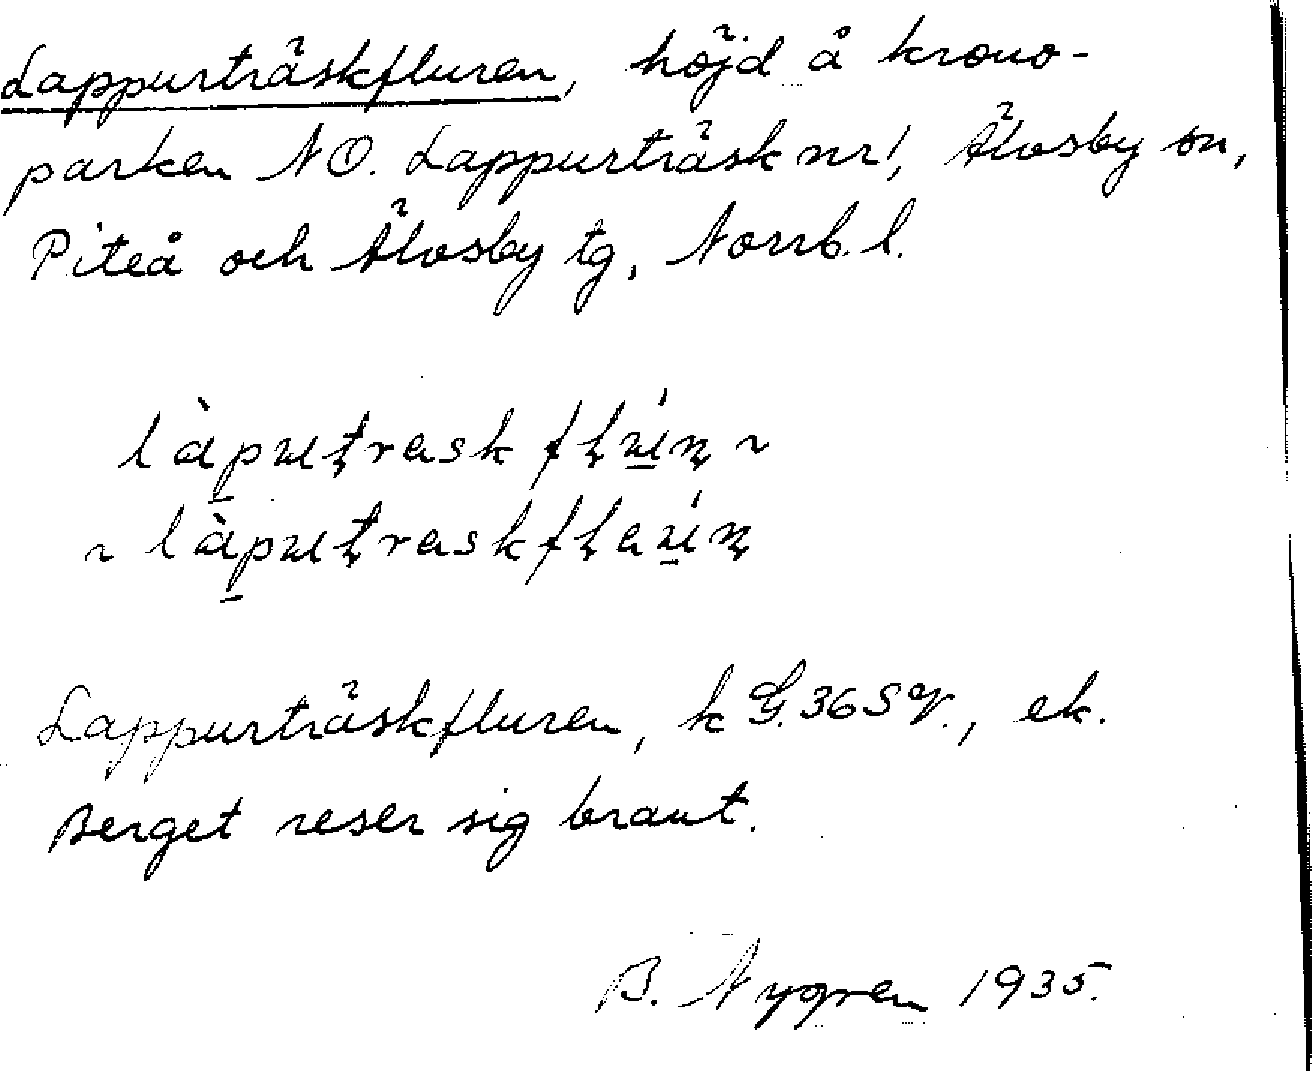 Lappurträskfluren, höjd å krono-
parken NO. Lappurträsk nr 1, Älvsby sn,
Piteå och Älvsby tg, Norrb. l.
Lappurträskfluren, k G. 36 SV., ek.
Berget reser sig brant.
B. Nygren 1935.